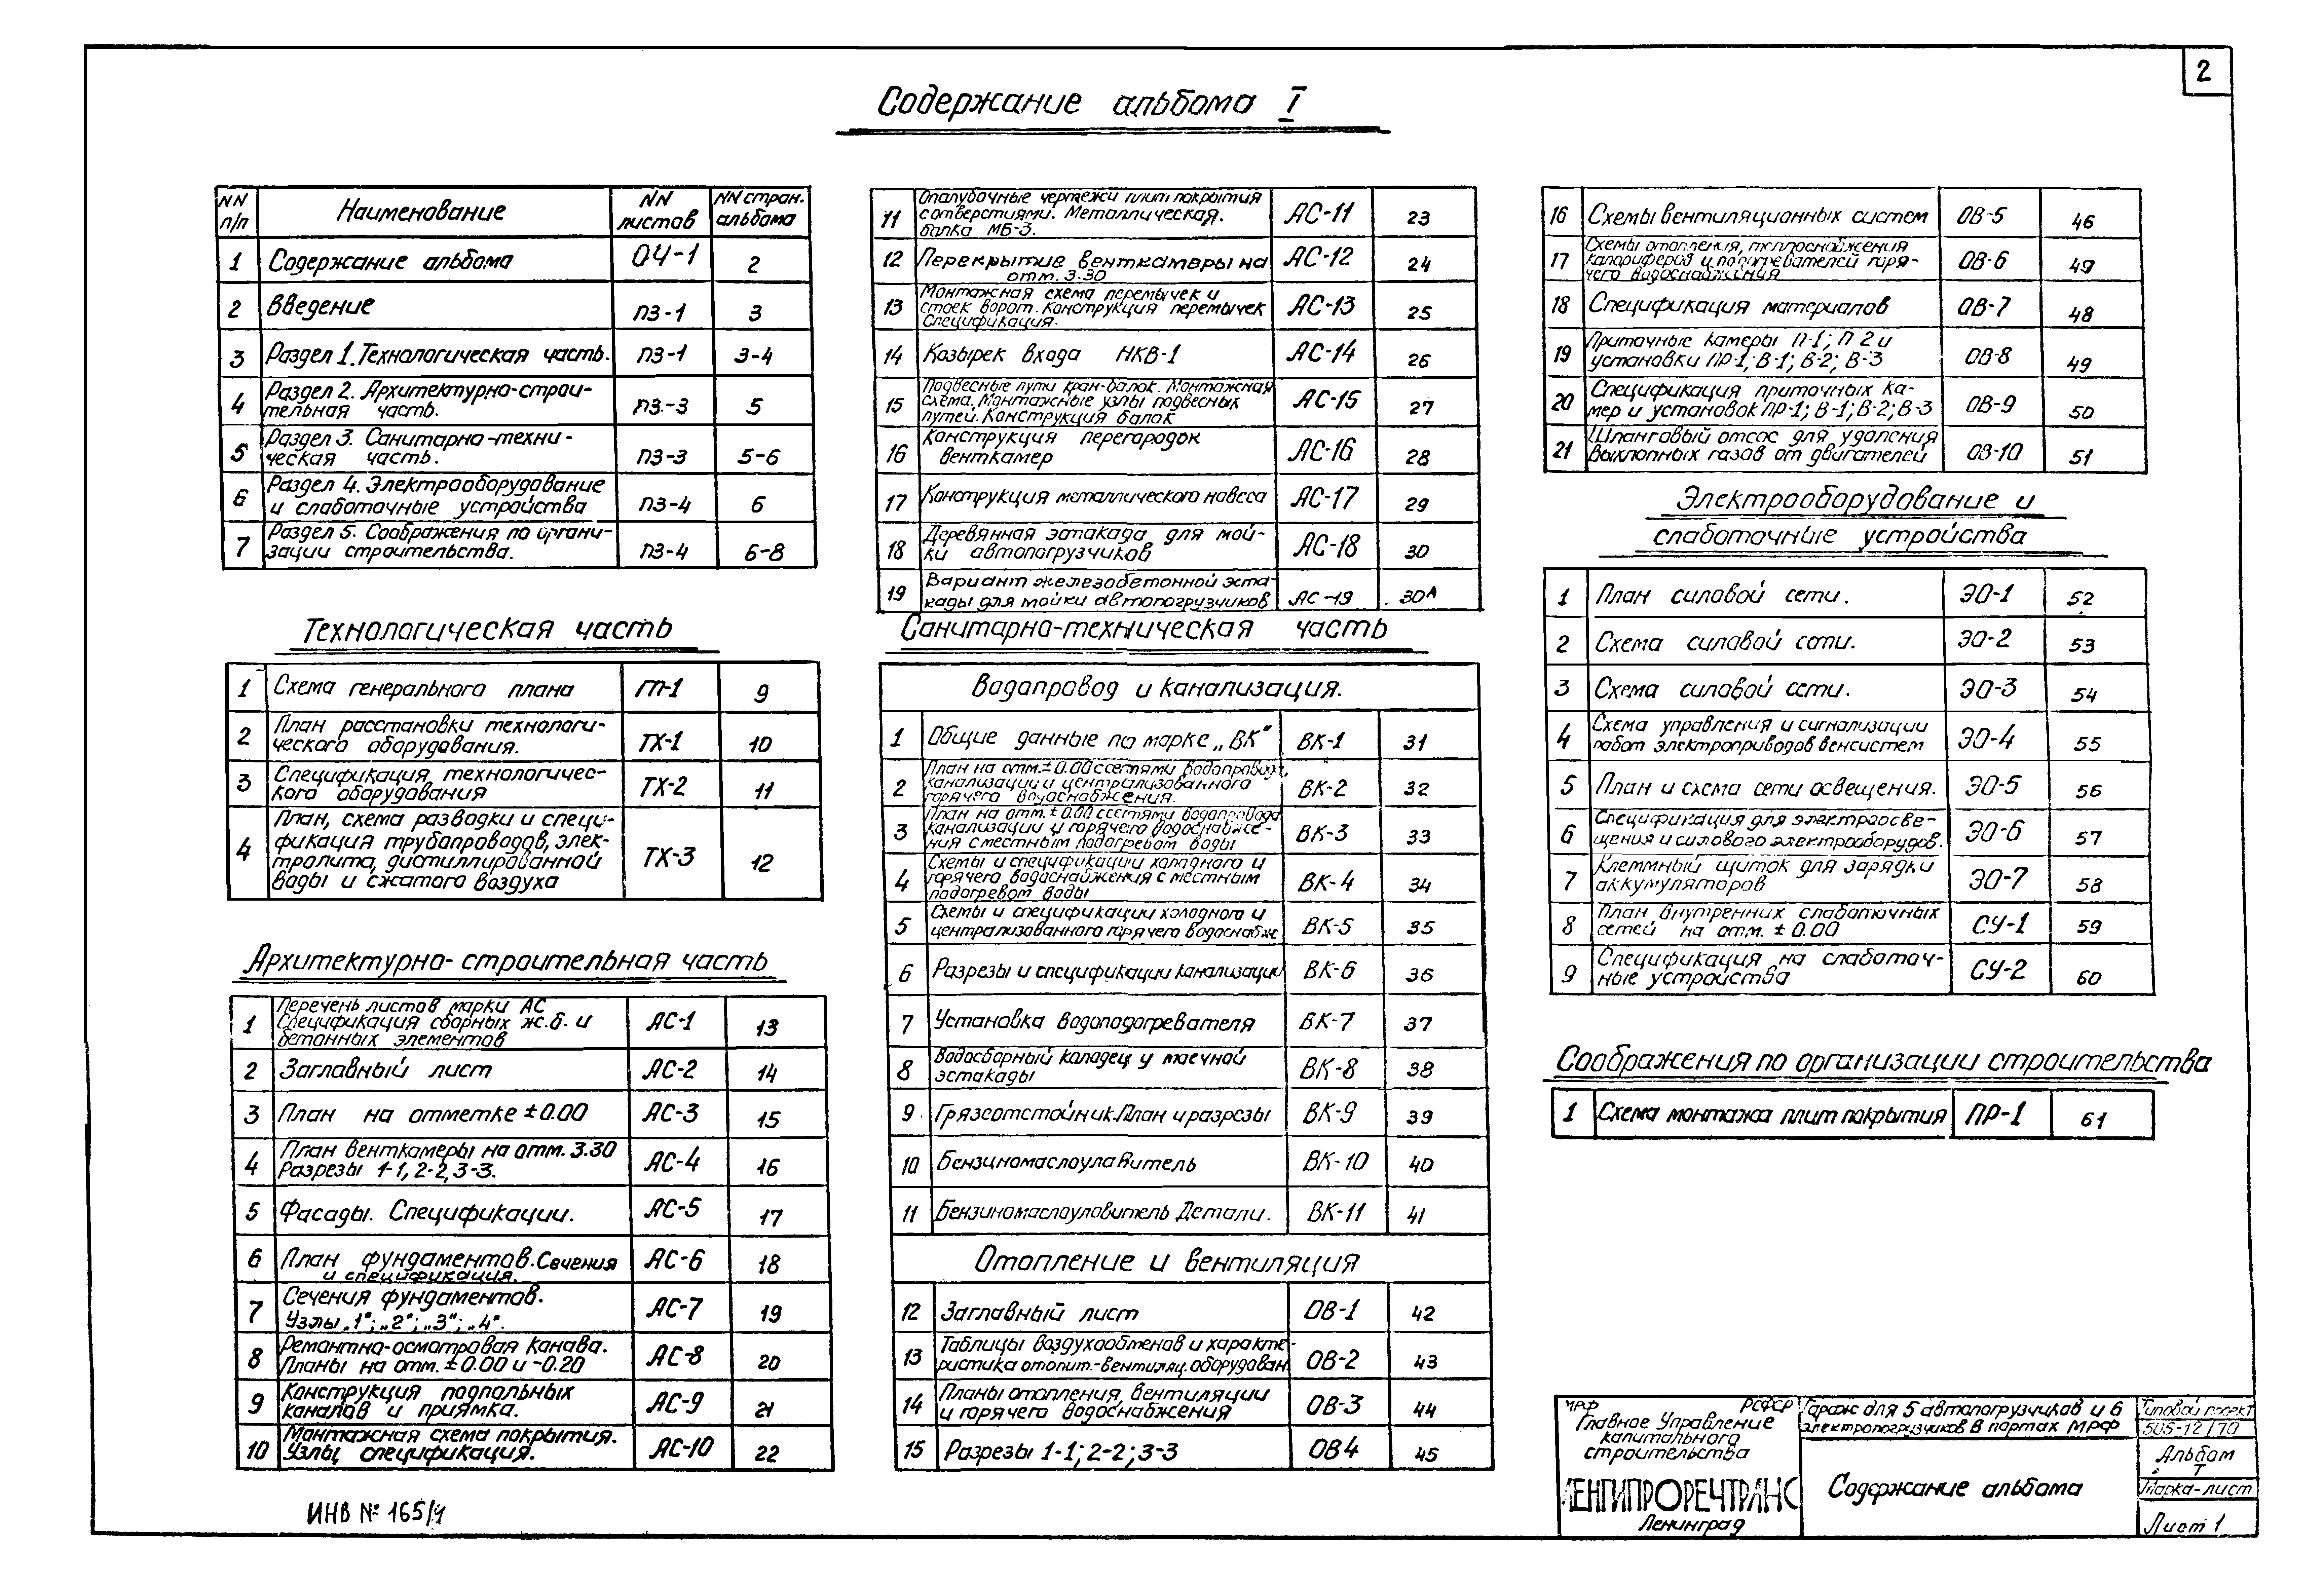 2
Содержание альбома I
NN п/п Наименование NN листов NN стран. альбома
1 Содержание альбома ОЧ-1 2
2 Введение ПЗ-1 3
3 Раздел 1. Технологическая часть. ПЗ-1 3-4
4 Раздел 2. Архитектурно-строи-
тельная часть. ПЗ-3 5
5 Раздел 3. Санитарно-техни-
ческая часть. ПЗ-3 5-6
6 Раздел 4. Электрооборудование
и слаботочные устройства ПЗ-4 6
7 Раздел 5. Соображения по органи-
зации строительства. ПЗ-4 6-8
Технологическая часть
1 Схема генерального плана ГП-1 9
2 План расстановки технологи-
ческого оборудования. ТХ-1 10
3 Спецификация технологичес-
кого оборудования ТХ-2 11
4 План, схема разводки и специ-
фикация трубопроводов, элек-
тролита, дистиллированной
воды и сжатого воздуха ТХ-3 12
Архитектурно-строительная часть
1 Перечень листов марки АС
Спецификация сборных ж.б. и
бетонных элементов АС-1 13
2 Заглавный лист АС-2 14
3 План на отметке ±0.00 АС-3 15
4 План венткамеры на отм. 3.30
Разрезы 1-1, 2-2, 3-3. АС-4 16
5 Фасады. Спецификации. АС-5 17
6 План фундаментов. Сечения
и спецификация. АС-6 18
7 Сечения фундаментов.
Узлы „1"; „2"; „3"; „4". АС-7 19
8 Ремонтно-осмотровая канава.
Планы на отм. ±0.00 и -0.20 АС-8 20
9 Конструкция подпольных
каналов и приямка. АС-9 21
10 Монтажная схема покрытия.
Узлы, спецификация. АС-10 22
ИНВ № 165/1
11 Опалубочные чертежи плит покрытия
с отверстиями. Металлическая.
балка МБ-3. АС-11 23
12 Перекрытие венткамеры на
отм. 3.30 АС-12 24
13 Монтажная схема перемычек и
стоек ворот. Конструкция перемычек
Спецификация. АС-13 25
14 Козырек входа НКВ-1 АС-14 26
15 Подвесные пути кран-балок. Монтажная
схема. Монтажные узлы подвесных
путей. Конструкция балок АС-15 27
16 Конструкция перегородок
венткамер АС-16 28
17 Конструкция металлического навеса АС-17 29
18 Деревянная эстакада для мой-
ки автопогрузчиков АС-18 30
19 Вариант железобетонной эста-
кады для мойки автопогрузчиков АС-19 30А
Санитарно-техническая часть
Водопровод и канализация.
1 Общие данные по марке „ВК" ВК-1 31
2 План на отм. ±0.00 с сетями водопровода,
канализации и централизованного
горячего водоснабжения. ВК-2 32
3 План на отм. ±0.00 с сетями водопровода
канализации и горячего водоснабже-
ния с местным подогревом воды ВК-3 33
4 Схемы и спецификации холодного и
горячего водоснабжения с местным
подогревом воды ВК-4 34
5 Схемы и спецификации холодного и
централизованного горячего водоснабж ВК-5 35
6 Разрезы и спецификации канализации ВК-6 36
7 Установка водоподогревателя ВК-7 37
8 Водосборный колодец у моечной
эстакады ВК-8 38
9 Грязеотстойник. План и разрезы ВК-9 39
10 Бензиномаслоуловитель ВК-10 40
11 Бензиномаслоуловитель Детали. ВК-11 41
Отопление и вентиляция
12 Заглавный лист ОВ-1 42
13 Таблицы воздухообменов и характе-
ристика отопит.-вентиляц. оборудован. ОВ-2 43
14 Планы отопления, вентиляции
и горячего водоснабжения ОВ-3 44
15 Разрезы 1-1; 2-2; 3-3 ОВ4 45
16 Схемы вентиляционных систем ОВ-5 46
17 Схемы отопления, теплоснабжения
калориферов и подогревателей горя-
чего водоснабжения ОВ-6 49
18 Спецификация материалов ОВ-7 48
19 Приточные камеры П-1; П 2 и
установки ПР-1; В-1; В-2; В-3 ОВ-8 49
20 Спецификация приточных ка-
мер и установок ПР-1; В-1; В-2; В-3 ОВ-9 50
21 Шланговый отсос для удаления
выхлопных газов от двигателей ОВ-10 51
Электрооборудование и
слаботочные устройства
1 План силовой сети. ЭО-1 52
2 Схема силовой сети. ЭО-2 53
3 Схема силовой сети. ЭО-3 54
4 Схема управления и сигнализации
работ электроприводов венсистем ЭО-4 55
5 План и схема сети освещения. ЭО-5 56
6 Спецификация для электроосве-
щения и силового электрооборудов. ЭО-6 57
7 Клеммный щиток для зарядки
аккумуляторов ЭО-7 58
8 План внутренних слаботочных
сетей на отм. ±0.00 СУ-1 59
9 Спецификация на слаботоч-
ные устройства СУ-2 60
Соображения по организации строительства
1 Схема монтажа плит покрытия ПР-1 61
МРФ РСФСР
Главное Управление
капитального
строительства
ЛЕНГИПРОРЕЧТРАНС
Ленинград
Гараж для 5 автопогрузчиков и 6
электропогрузчиков в портах МРФ
Содержание альбома
Типовой проект
505-12/70
Альбом
I
Марка-лист
Лист 1